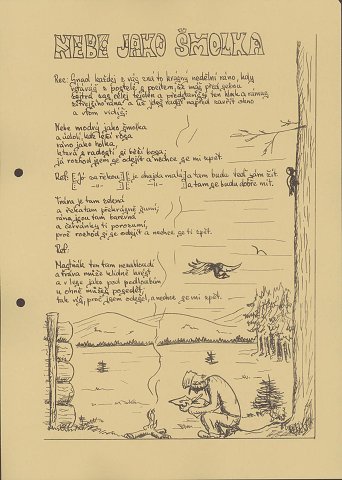 NEBE JAKO ŠMOLKA
Rec: Snad každej z vás zná to krásný nedělní ráno, kdy
vstáváš z postele s pocitem, že máš před sebou
ten
zítřejšího rána a už jdeš najed zavřít okno
a v tom vidíš:
Nebe modrý jako šmolka
a údolí, kde leží rosa
ráno jako holka,
která s radostí si běží bosa,
já rozhod jsem se odejít a nechce se mi zpět.
Ref: za řekou je chajda malá a tam budu teď sám žít
-"- -"- a tam se budu dobře mít.
Tráva je tam zelená
a řeka tam překrásně šumí,
rána jsou tam barevná
a červánky ti porozumí,
proč rozhod si se odejít a nechce se ti zpět.
Ref.
Mastňák ten tam nenabloudí
a tráva může klidně kvést
a v lese jako pod podloubím
u ohně můžeš posedět,
tak víš, proč jsem odešel, a nechce se mi zpět.